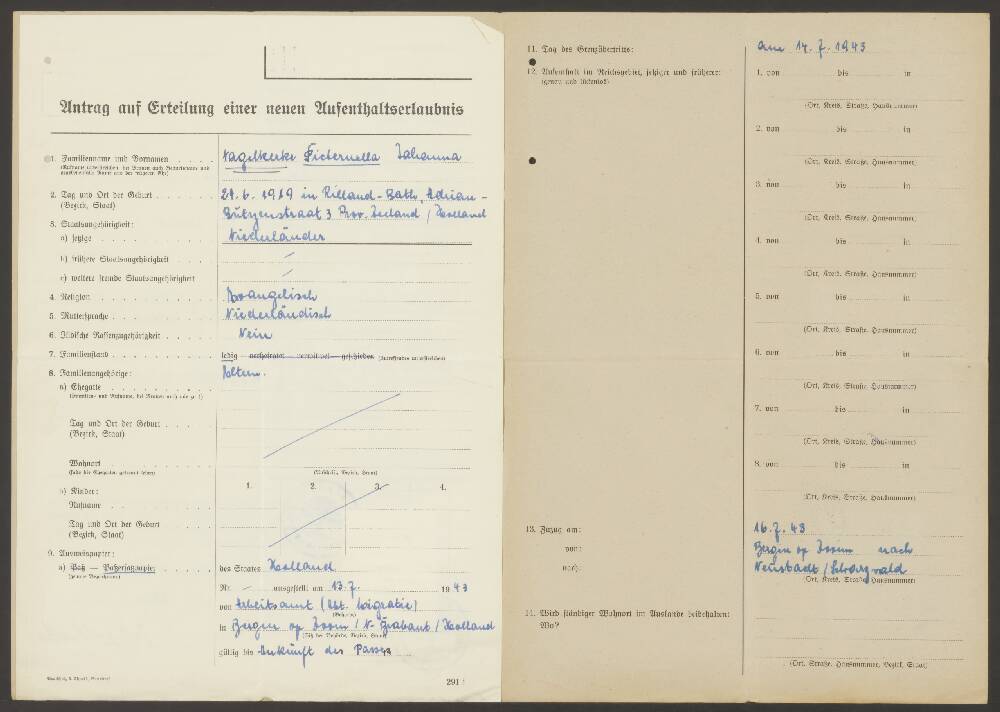 Antrag auf Erteilung einer neuen Aufenthaltserlaubnis
1. Familienname und Vornamen . . . . Nagelkerke Pieternella Johanna
2. Tag und Ort der Geburt . . . . 21.6.1919 in Rilland-Bath, Adrian-
(Bezirk, Staat) straat 3 Prov. Zeeland / Holland
3. Staatsangehörigkeit:
a) jetzige . . . . Niederländer
b) frühere Staatsangehörigkeit
c) weitere fremde Staatsangehörigkeit
4. Religion . . . . Evangelisch
5. Muttersprache . . . . Niederländisch
6. Jüdische Rassenzugehörigkeit . . . . Nein
7. Familienstand . . . . ledig – verheiratet – verwitwet – geschieden (Zutreffendes unterstreichen)
8. Familienangehörige: Eltern.
a) Ehegatte . . . .
Tag und Ort der Geburt . . . .
(Bezirk, Staat)
Wohnort . . . .
b) Kinder: 1. 2. 3. 4.
Rufname . . . .
Tag und Ort der Geburt . . . .
(Bezirk, Staat)
9. Ausweispapier:
a) Paß — Paßersatzpapier . . . . des Staates Holland
Nr. – ausgestellt am 13.7. 1943
von Arbeitsamt (Abt. Migratie)
(Behörde)
in Bergen op Zoom / N-Brabant / Holland
(Sitz der Behörde, Bezirk, Staat)
gültig bis Ankunft des Passes
291
11. Tag des Grenzübertritts: am 14.7.1943
12. Aufenthalt im Reichsgebiet, jetziger und früherer:
(genau und lückenlos)
1. von bis in
(Ort, Kreis, Straße, Hausnummer)
2. von bis in
(Ort, Kreis, Straße, Hausnummer)
3. von bis in
(Ort, Kreis, Straße, Hausnummer)
4. von bis in
(Ort, Kreis, Straße, Hausnummer)
5. von bis in
(Ort, Kreis, Straße, Hausnummer)
6. von bis in
(Ort, Kreis, Straße, Hausnummer)
7. von bis in
(Ort, Kreis, Straße, Hausnummer)
8. von bis in
(Ort, Kreis, Straße, Hausnummer)
13. Zuzug am: 16.7.43
von: Bergen op Zoom nach
nach: Neustadt / Schwarzwald
(Ort, Kreis, Straße, Hausnummer)
14. Wird ständiger Wohnort im Auslande beibehalten:
Wo?
(Ort, Straße, Hausnummer, Bezirk, Staat)